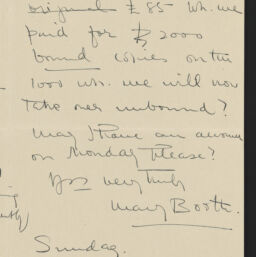 original £85 wh. we
paid for 2000
bound copies on the
1000 wh. we will now
take over unbound?
May I have an account
on Monday please?
Yrs very truly
Mary Booth.
Sunday.